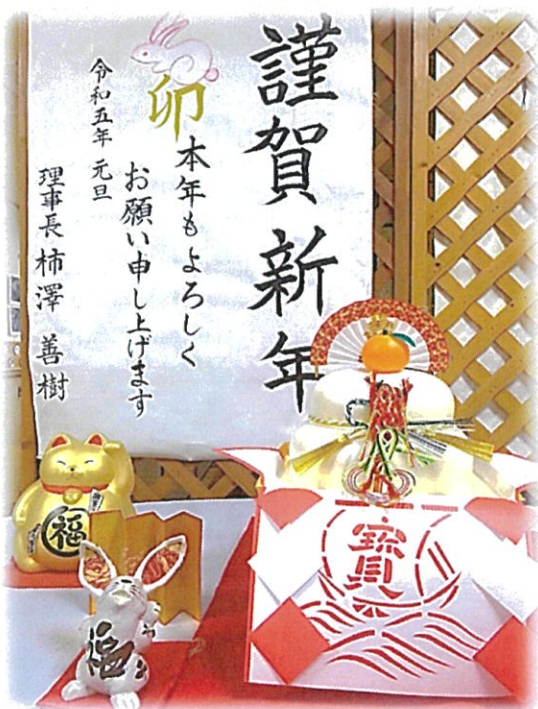 謹賀新年
卯
本年もよろしく
お願い申し上げます
令和五年 元旦
理事長 柿澤 善樹
福
福
寶